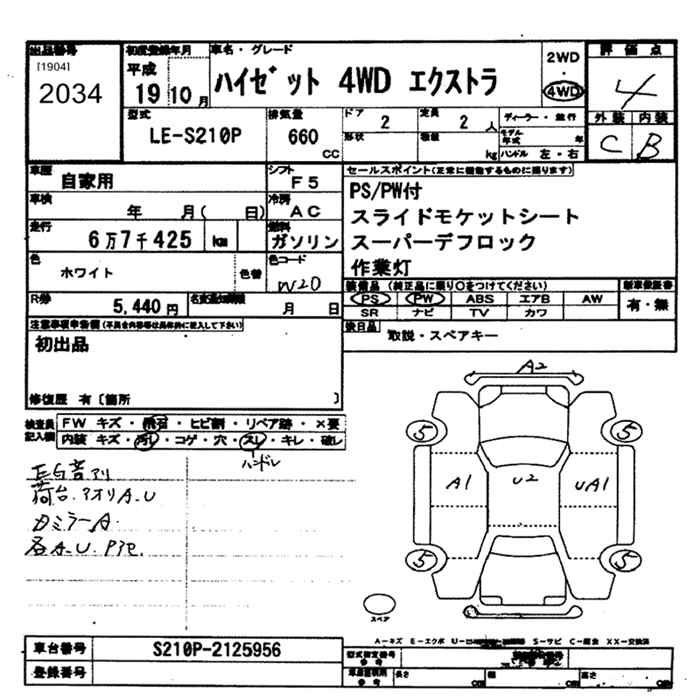 出品番号
[1904]
2034
初度登録年月
平成
19 10 月
車名・グレード
ハイゼット 4WD エクストラ
2WD
・
4WD
評価点
4
外装 内装
C B
型式
LE-S210P
排気量
660
CC
ドア 2
形状
定員 2 人
積載 kg
ディーラー・並行
モデル年式 年
ハンドル 左・右
車歴
自家用
シフト
F5
車検
年 月( 日)
冷房
AC
走行
6万7千425 km
燃料
ガソリン
色
ホワイト
色替
色コード
W20
R券
5,440 円
名変期限
月 日
セールスポイント(正常に機能するものに限ります)
PS/PW付
スライドモケットシート
スーパーデフロック
作業灯
装備品 (純正品に限り○をつけてください)
PS PW ABS エアB AW
SR ナビ TV カワ
新車保証書
有・無
後日品
取説・スペアキー
注意事項申告欄(不具合内容等は具体的に記入して下さい)
初出品
修復歴 有〔箇所 〕
検査員記入欄
FW キズ・飛石・ヒビ割・リペア跡・×要
内装 キズ・汚れ・コゲ・穴・スレ・キレ・破レ
ハンドル
荷台.アオリA.U
ミラーA.
各A.U.
A2
5 5
A1 U2 UA1
5 5
スペア
A−キズ E−エクボ S−サビ C−腐食 XX−交換済
車台番号
S210P-2125956
登録番号
型式指定番号
参考
長さ cm
幅 cm
高さ cm